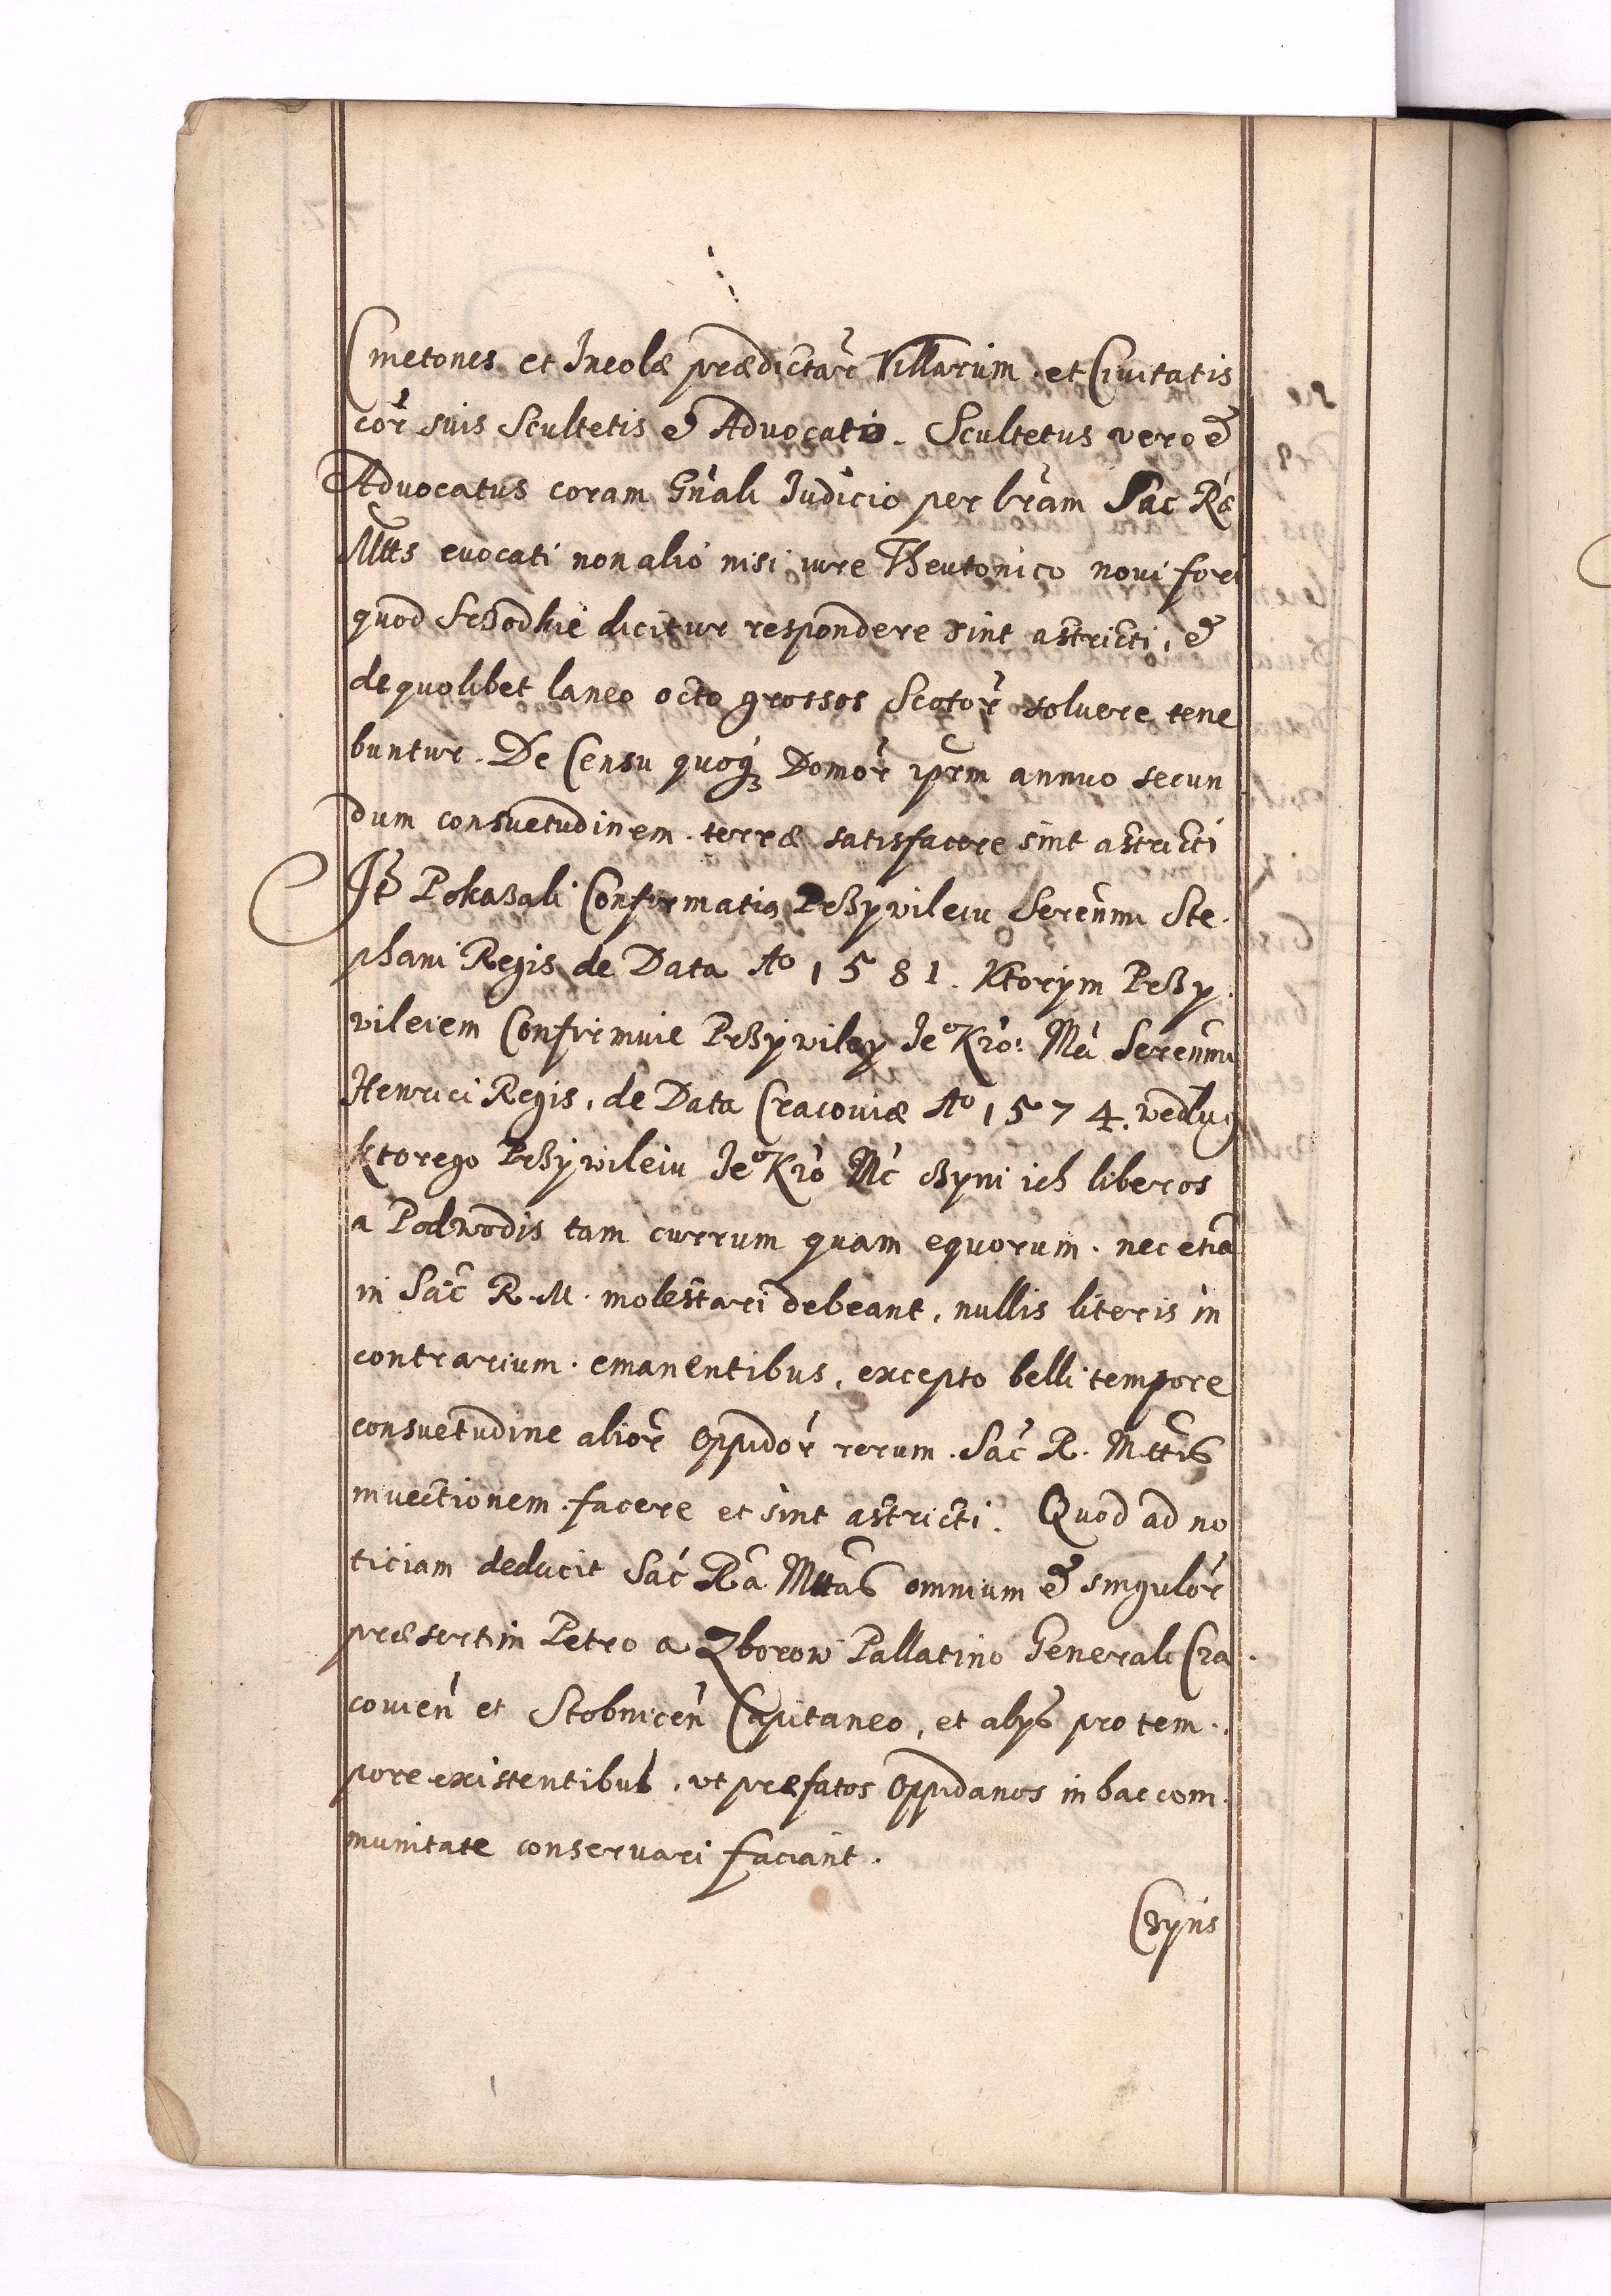 Cmetones et Incolæ prædictar̃ Villarum et Civitatis
cor̃ suis Scultetis et Advocatis. Scultetus vero et
Advocatus coram Gñali Iudicio per lr̃am Sac Ræ
Mttis evocati non alio nisi iure Theutonico novi fori
quod Srzodkie dicitur respondere sint astricti, et
de quolibet laneo octo grossos Scotor̃ soluere tene
buntur. De Censu quoq₃ Domor̃ ipr̃m annuo secun
dum consuetudinem terræ satisfacere sint astricti
Itẽ Pokazali Confirmatią Przywileiu Serenmi Ste.
phani Regis de Data Aº 1581. Ktorym Przy.
wileiem Confirmuie Przywiley Jeº Kró: Mći Serenmi
Henrici Regis, de Data Cracoviæ Aº 1574. wedlug
ktorego Przywileiu Jeº Kró Mć czyni ich liberos
a Podwodis tam currum quam equorum. nec etiã
in Sac̃ R. M. molestari debeant, nullis literis in
contrarium emanentibus, excepto belli tempore
consuetudine alior̃ Oppidor̃ rerum Sac̃ R. Mttis
invectionem facere et sint astricti. Quod ad no
ticiam deducit Sac̃ Rã Mttas omnium et singulor̃
præsertim Petro a Zborow Pallatino Generali Cra.
covień et Stobnicen̄ Capitaneo, et alijs pro tem.
pore existentibus, ut præfatos Oppidanos in hac com.
munitate conservari faciant.
Czyns